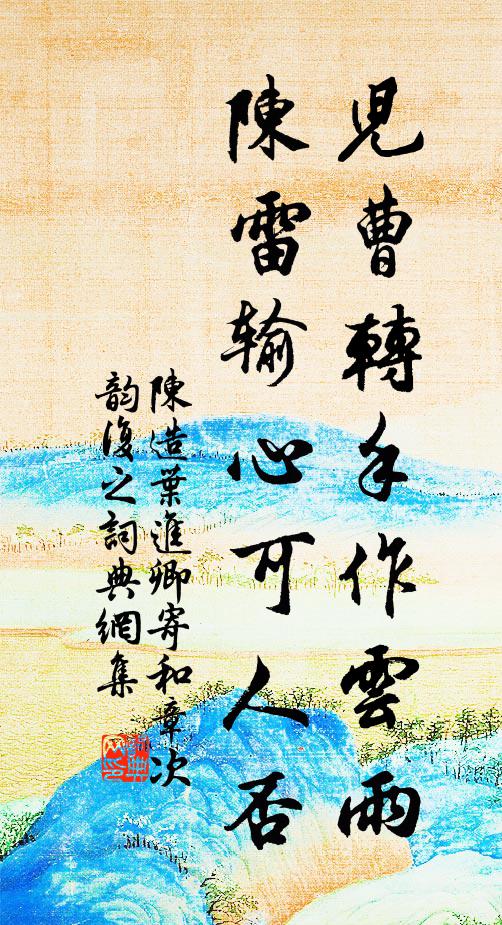 児曹轉手作雲雨
陳雷输心可人否
陳造葉進卿寄和章次
韵復之詞典網集